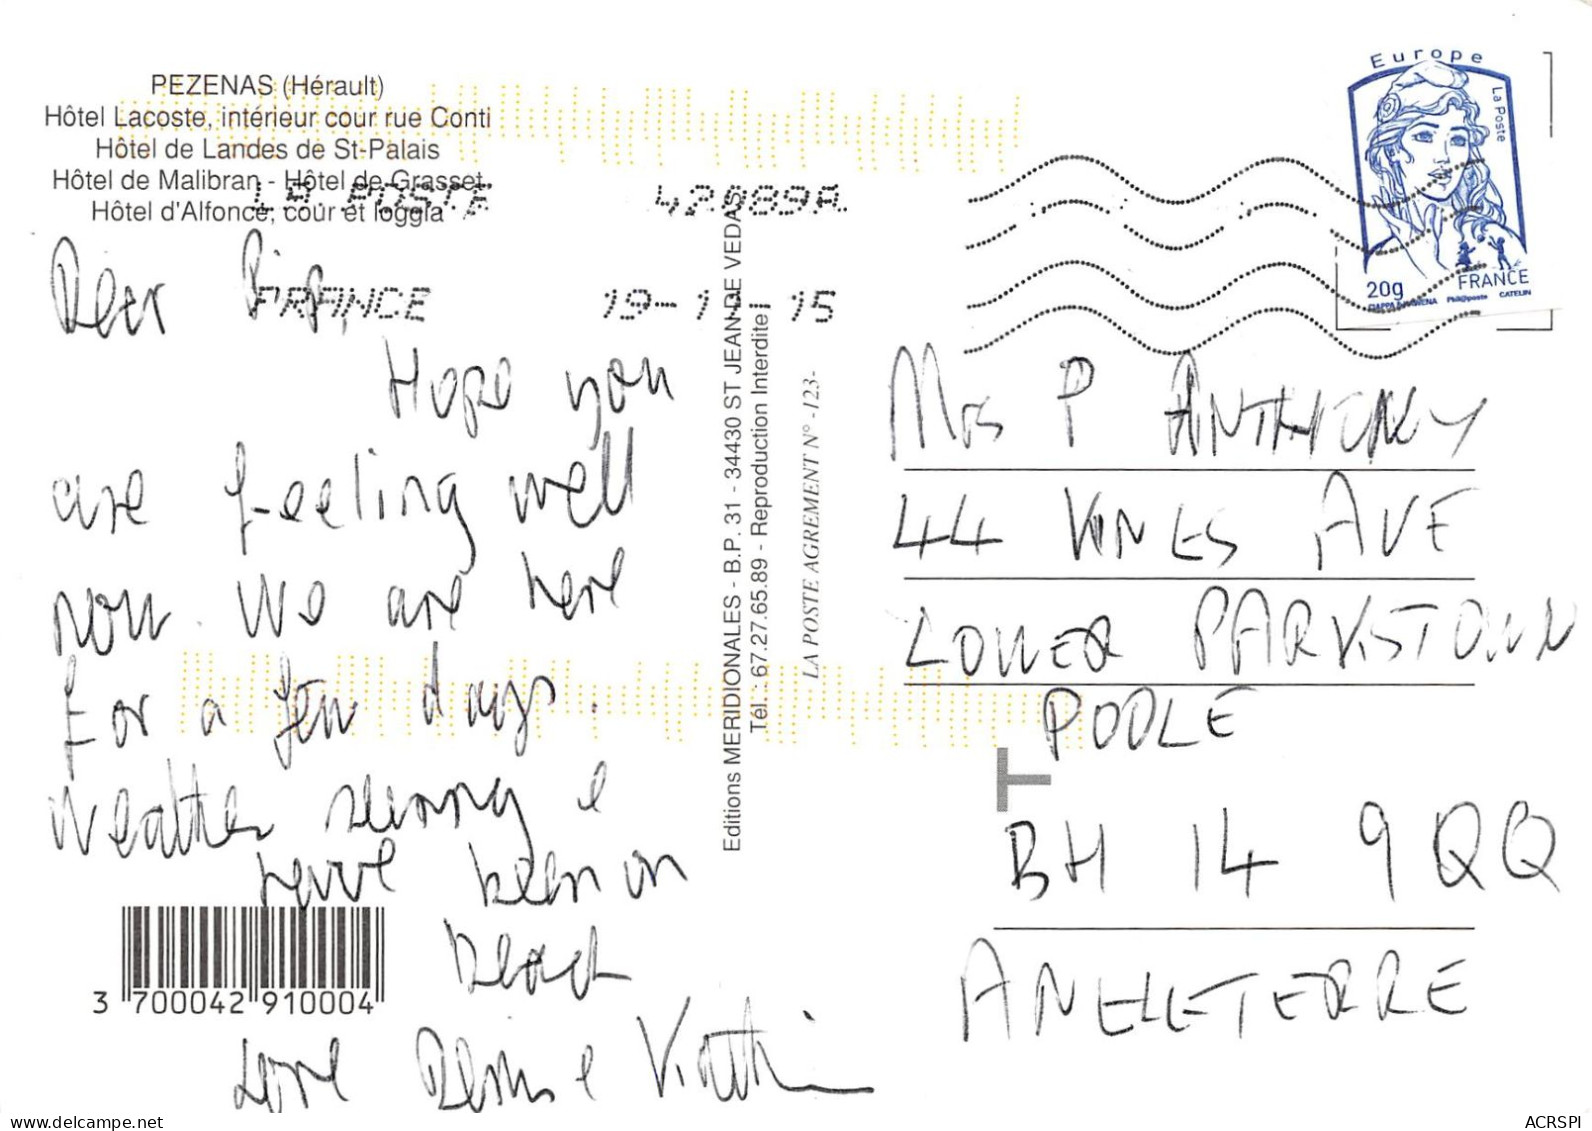 PEZENAS (Hérault)
Hôtel Lacoste, intérieur cour rue Conti
Hôtel de Landes de St-Palais
Hôtel de Malibran - Hôtel de Grasset
Hôtel d'Alfonce, cour et loggia
LA POSTE 42989A
FRANCE 19-1 -15
Dear
Hope you
are feeling well
now. We are here
for a few days.
Weather sunny &
have been on
beach
Love Denis &
3 700042 910004
Editions MERIDIONALES - B.P. 31 - 34430 ST JEAN DE VEDAS
Tél. : 67.27.65.89 - Reproduction Interdite
LA POSTE AGREMENT N° -123-
Europe
La Poste
20g FRANCE
Phil@poste CATELIN
Mrs P ANTHONY
44 VINES AVE
LOWER PARKSTOWN
POOLE
T
BH 14 9QQ
ANGLETERRE
delcampe.net
ACRSPI